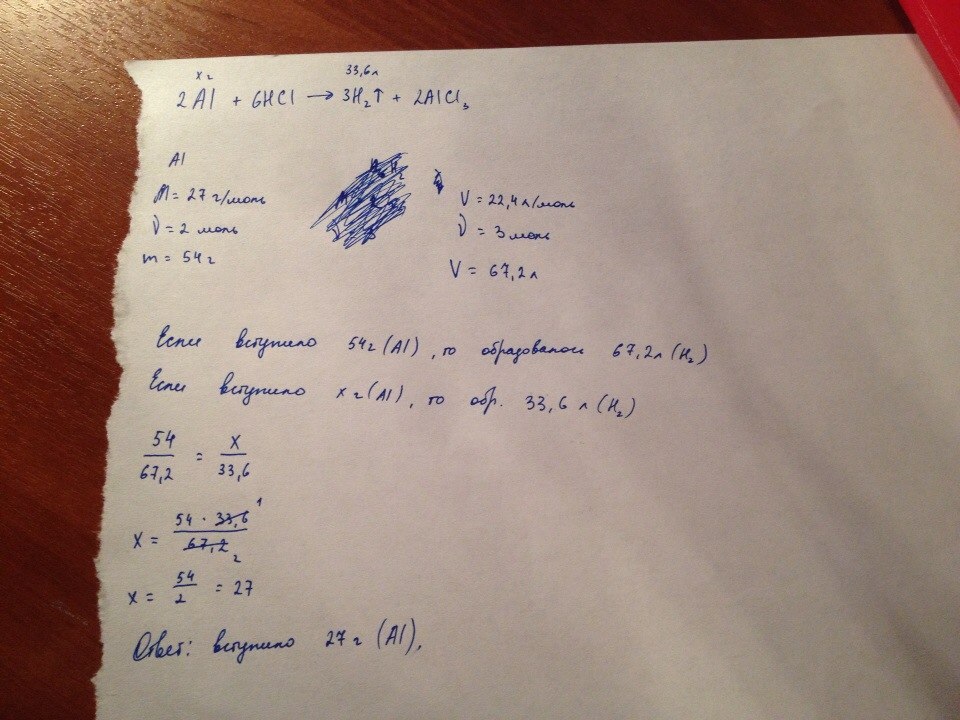 x г 33,6 л
2Al + 6HCl → 3H₂↑ + 2AlCl₃
Al
M = 27 г/моль V = 22,4 л/моль
ν = 2 моль ν = 3 моль
m = 54 г V = 67,2 л
Если вступило 54 г (Al), то образовалось 67,2 л (H₂)
Если вступило x г (Al), то обр. 33,6 л (H₂)
54/67,2 = x/33,6
x = 54 · 33,6 1 / 67,2 2
x = 54/2 = 27
Ответ: вступило 27 г (Al).